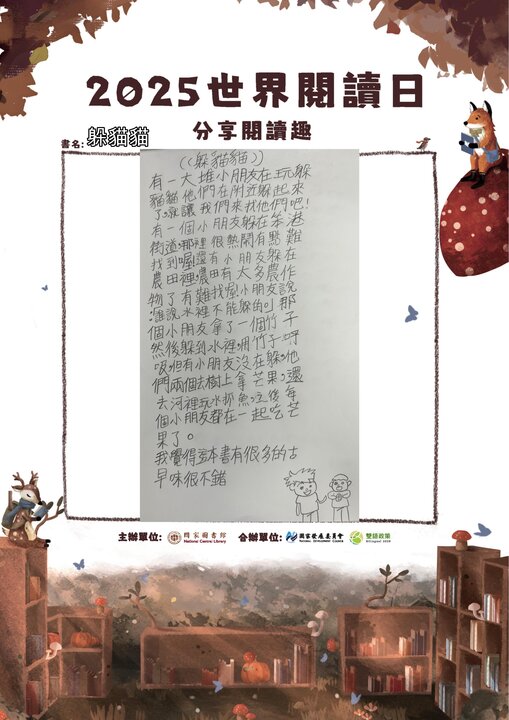 2025世界閱讀日
分享閱讀趣
書名:躲貓貓
((躲貓貓))
有一大堆小朋友在玩躲
貓貓他們在附近躲起來
了。就讓我們來找他們吧!
有一個小朋友躲在笨港
街道,那裡很熱鬧有點難
找到喔!還有小朋友躲在
農田裡,農田有太多農作
物了有難找喔!小朋友說
:誰說水裡不能躲的!那
個小朋友拿了一個竹子
然後躲到水裡用竹子呼
吸,但有小朋友沒在躲,他
們兩個去樹上拿芒果,還
去河裡玩水抓魚,最後每
個小朋友都在一起吃芒
果了。
我覺得這本書有很多的古
早味很不錯
主辦單位: 國家圖書館 National Central Library 合辦單位: 國家發展委員會 NATIONAL DEVELOPMENT COUNCIL 雙語政策 Bilingual 2030